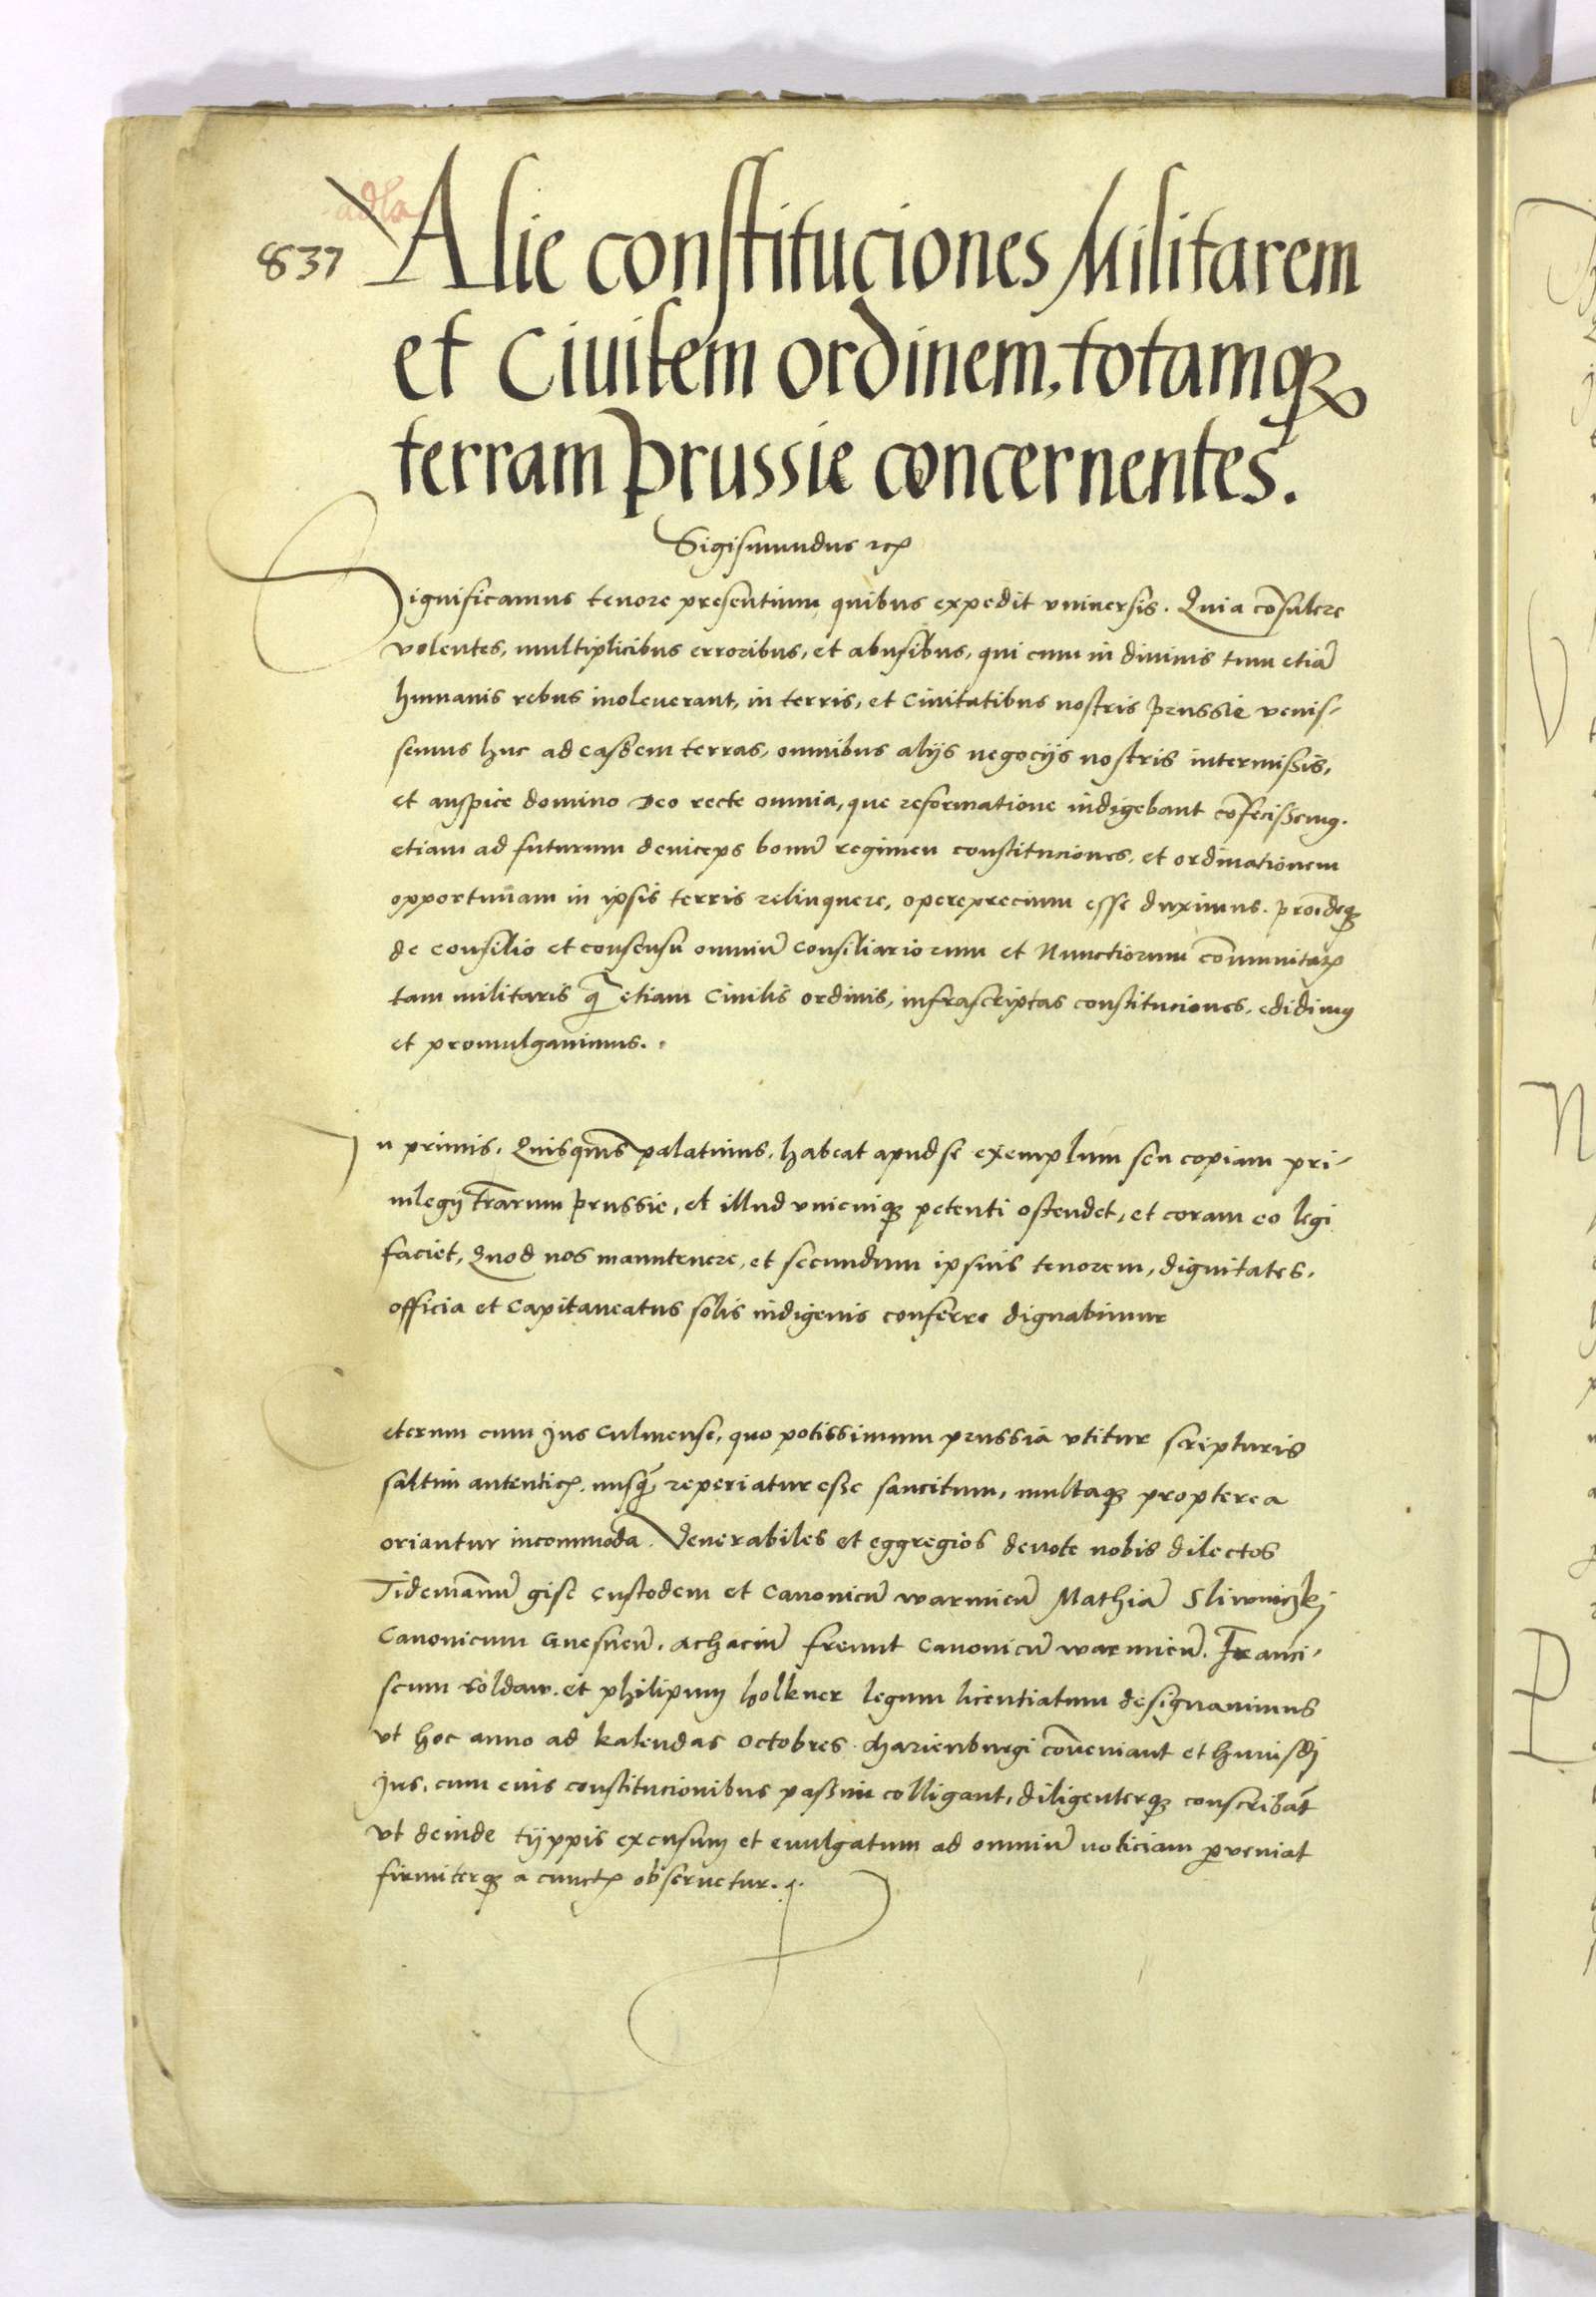 837
Alie constituciones Militarem
et Ciuilem ordinem, totamqꝫ
terram prussie concernentes.
Sigismundus rex
Significamus tenore presentium quibus expedit vniuersis. Quia cōsulere
volentes, multiplicibus erroribus, et abusibus, qui cum in diuinis tum etiā
humanis rebus inoleuerant, in terris, et Ciuitatibus nostris prussie venis-
semus huc ad easdem terras, omnibus alijs negocijs nostris intermissis,
et auspice domino Deo recte omnia, que reformatione indigebant cōfecissemꝰ.
etiam ad futurum deinceps bonū regimen constituciones, et ordinationem
opportunam in ipsis terris relinquere, opereprecium esse duximus. proīdeqꝫ
de consilio et consensu omniū consiliariorum et Nunctiorum cōmunitatꝝ
tam militaris q̄ etiam Ciuilis ordinis, infrascriptas constituciones, edidimꝰ
et promulgauimus.
In primis. Quisquis palatinus, habeat apud se exemplum seu copiam pri-
uilegij tr̄arum prussie, et illud vnicuiqꝫ petenti ostendet, et coram eo legi
faciet, Quod nos manutenere, et secundum ipsius tenorem, dignitates,
officia et Capitaneatus solis indigenis conferre dignabimur
Ceterum cum Jus Culmense, quo potissimum prussia vtitur scripturis
saltim autenticꝭ, nusq̄, reperiatur esse sancitum, multaqꝫ propterea
oriantur incommoda. Venerabiles et eggregios deuote nobis dilectos
Tidemānū gise Custodem et Canonicū warmieñ Mathiā Sliwniczkj
Canonicum Gnesneñ. Achaciū freunt Canonicū warmieñ. Franci-
scum soldaw. et philipum holkner legum licentiatum designauimus
vt hoc anno ad kalendas Octobres Marienburgi cōueniant et huiusdj
Jus, cum eius constitucionibus passim colligant, diligenterqꝫ conscribāt
vt deinde tijppis excusum et euulgatum ad omniū noticiam perueniat
firmiterqꝫ a cunctꝭ obseruetur.